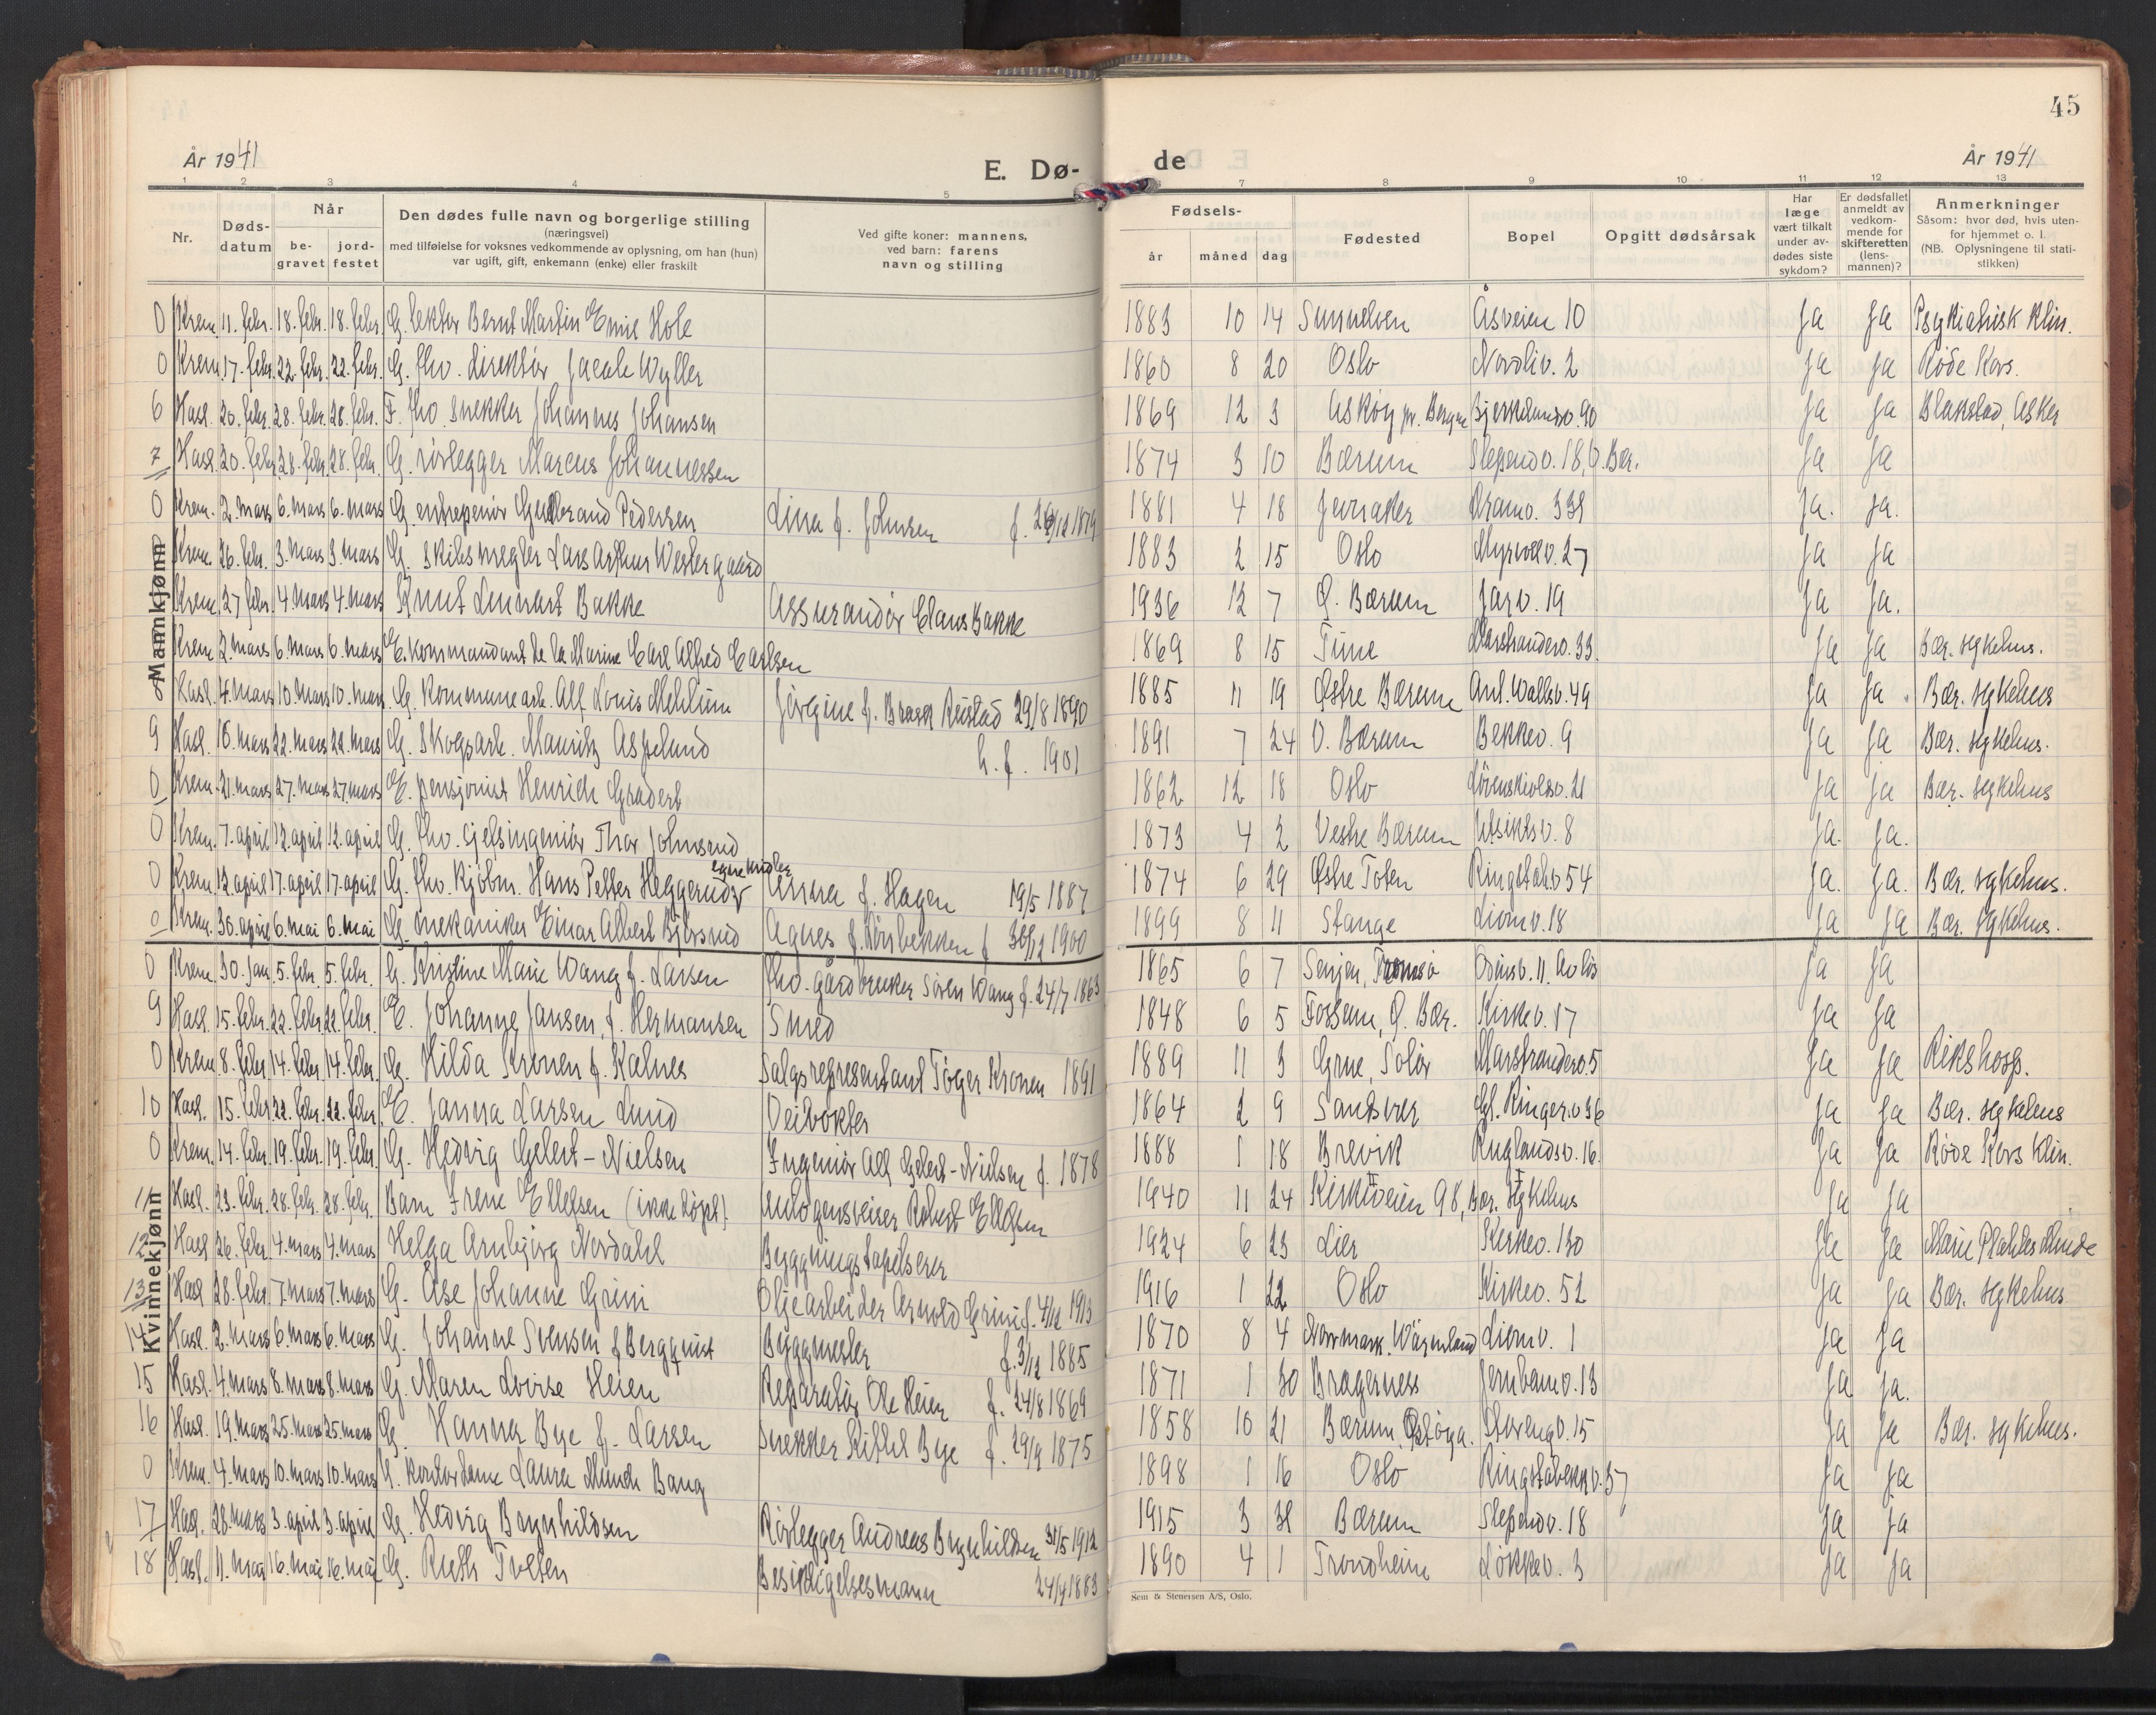 45
År 1941
E. Dø-
de
År 1941
1 2 3 4 5 7 8 9 10 11 12 13
Nr.
Døds-
datum
Når
be-
gravet
jord-
festet
Den dødes fulle navn og borgerlige stilling
(næringsvei)
med tilføielse for voksnes vedkommende av oplysning, om han (hun)
var ugift, gift, enkemann (enke) eller fraskilt
Ved gifte koner: mannens,
ved barn: farens
navn og stilling
Fødsels-
år måned dag
Fødested
Bopel
Opgitt dødsårsak
Har
læge
vært tilkalt
under av-
dødes siste
sykdom?
Er dødsfallet
anmeldt av
vedkom-
mende for
skifteretten
(lens-
mannen)?
Anmerkninger
Såsom: hvor død, hvis uten-
for hjemmet o. l.
(NB. Oplysningene til stati-
stikken)
Mannkjønn
0 Krem. 11. febr. 18. febr. 18. febr. G. lektor Bernt Martin Emil Hole 1883 10 14 Sunnelven Åsveien 10 Ja Ja Psykiatrisk Klin.
0 Krem. 17. febr. 22. febr. 22. febr. G. fhv. direktør Jacob Wyller 1860 8 20 Oslo Nordliv. 2 Ja Ja Røde Kors.
6 Hasl. 20. febr. 28. febr. 28. febr. F. fhv. snekker Johannes Johansen 1869 12 3 Askøy pr. Bergen Bjerkelundsv. 90 Ja Ja Blakstad, Asker
7 Hasl. 20. febr. 28. febr. 28. febr. G. rørlegger Marcus Johannessen 1874 3 10 Bærum Slependv. 18, V. Bær. Ja Ja
0 Krem. 2. mars 6. mars 6. mars G. entreprenør Gudbrand Pedersen Lina f. Johnsen f. 12 1879 1881 4 18 Jevnaker Dramv. Ja. Ja.
0 Krem. 26. febr. 3. mars 3. mars G. skibsmegler Lars Arthur Westergaard 1883 2 15 Oslo Myrvollv. 27 Ja Ja
Krem. 27. febr. 4. mars 4. mars Knut Lennart Bakke Assurandør Claus Bakke 1936 12 7 Ø. Bærum Jarv. 19 Ja Ja.
Krem. 2. mars 6. mars 6. mars E. kommandant de la Marine Carl Alfred Carlsen 1869 8 15 Tune Marstranderv. 33. Ja Ja Bær. sykehus.
Hasl. 4. mars 10. mars 10. mars G. Kommunearb. Alf Louis Mehlum Jørgine f. Rustad 29/8 1890 1885 11 19 Østre Bærum Ant. Wallsv. 49 Ja Ja. Bær. sykehus
9 Hasl. 16. mars 22. mars 22. mars G. Skogsarb. Mauritz Aspelund h. f. 1901 1891 7 24 V. Bærum Bekkev. 9 Ja Ja Bær. sykehus.
0 Krem. 21. mars 27. mars 27. mars E. pensjonist Henrich Gradert 1862 12 18 Oslo Løvenskiolsv. 21 Ja Ja Bær. sykehus
0 Krem. 7. april 12. april 12. april G. fhv. Thor Johnsrud 1873 4 2 Vestre Bærum Utsiktsv. 8 Ja. Ja.
0 Krem. 12. april 17. april 17. april G. fhv. kjøbm. Hans Petter Heggerudv Anna f. Hagen 19/5 1887 1874 6 29 Østre Toten Ringstabv. 54 Ja. Ja. Bær. sykehus.
0 Krem. 30. april 6. mai 6. mai G. mekaniker Einar Albert Bjørsrud Agnes f. Lønbekken f. 1900 1899 8 11 Stange Liomv. 18 Ja Ja Bær. sykehus.
Kvinnekjønn
0 Krem. 30. jan. 5. febr. 5. febr. G. Kristine Marie Wang f. Larsen fhv. gårdbruker Søren Wang f. 24/7 1863 1865 6 7 Senjen, Tromsø Odinsv. 11. Ja Ja
9 Hasl. 15. febr. 22. febr. 22. febr. E. Johanne Jansen, f. Hermansen Smed 1848 6 5 Fossum, Ø. Bær. Kirkev. 17 Ja Ja
0 Krem. 8. febr. 14. febr. 14. febr. G. Hilda Kronen f. Kalnes Salgsrepresentant Tøger Kronen 1891 1889 11 3 Grue, Solør Marstranderv. 5 Ja Ja Rikshosp.
10 Hasl. 15. febr. 22. febr. 22. febr. E. Janna Larsen Lund Veivokter 1864 2 9 Sandsvær Gl. Ringer. v. 36 Ja Ja Bær. sykehus
0 Krem. 14. febr. 19. febr. 19. febr. G. Hedvig Gelert-Nielsen Ingeniør Alf Gelert-Nielsen f. 1878 1888 1 18 Brevik Ruglandsv. 16. Ja Ja Røde Kors Klin.
11 Hasl. 23. febr. 28. febr. 28. febr. Barn Irene Ellefsen (ikke døpt) Autogensveiser Robert Ellefsen 1940 11 24 Kirkeveien 98, Bær. sykehus Ja Ja
12 Hasl. 26. febr. 4. mars 4. mars Helga Arnbjørg Nordahl Bygningstapetserer 1924 6 23 Lier Kirkev. 130 Ja Ja Marie Plathes Minde
13 Hasl. 28. febr. 7. mars 7. mars G. Åse Johanne Grini Oljearbeider Arnold Grini f. 4/12 1913 1916 1 22 Oslo Kirkev. 52 Ja Ja Bær. sykehus
14 Hasl. 2. mars 6. mars 6. mars G. Johanne Svensen f Bergquist Byggmester f. 3/12 1885 1870 8 4 Norrmark, Värmland Liomv. 1 Ja Ja
15 Hasl. 4. mars 8. mars 8. mars G. Maren Lovise Heien Reparatør Ole Heien f. 24/8 1869 1871 1 30 Bragernes Jernbanev. 13 Ja Ja.
16 Hasl. 19. mars 25. mars 25. mars G. Hanna Bye f. Larsen Snekker Kittil Bye f. 29/9 1875 1858 10 21 Bærum, Østøya. Storengv. 15 Ja Ja Bær. sykehus.
0 Krem. 4. mars 10. mars 10. mars U. kontordame Laura Munch Bang 1898 1 16 Oslo Ringstabekkv. 57 Ja Ja
17 Hasl. 28. mars 3. april 3. april G. Hedvig Brynhildsen Rørlegger Andreas Brynhildsen 31/5 1912 1915 3 31 Bærum Slependv. 18 Ja Ja
18 Hasl. 11. mai 16. mai 16. mai G. Ruth Tveten Besiktigelsesmann 24/4 1883 1890 4 1 Trondheim Løkkev. 3 Ja Ja
Sem & Stenersen A/S, Oslo.